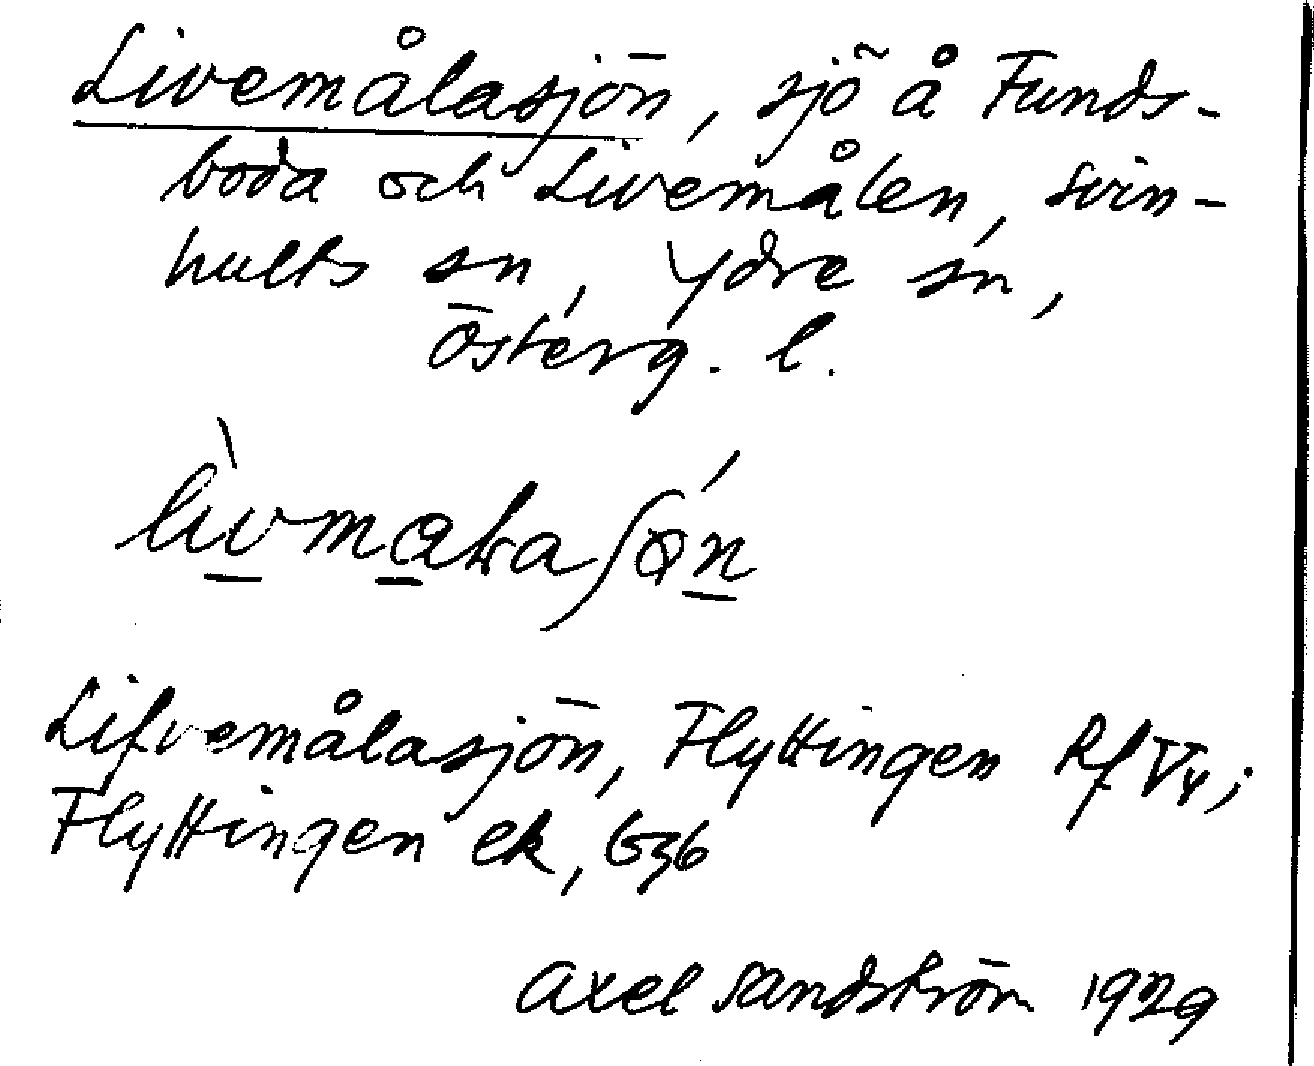 Livemålasjön, sjö å Funds-
boda och Livemålen, Svin-
hults sn, Ydre sn,
Österg. l.
Lifvemålasjön, Flyttingen Rf V4;
Flyttingen ek, G36
Axel Sandström 1929